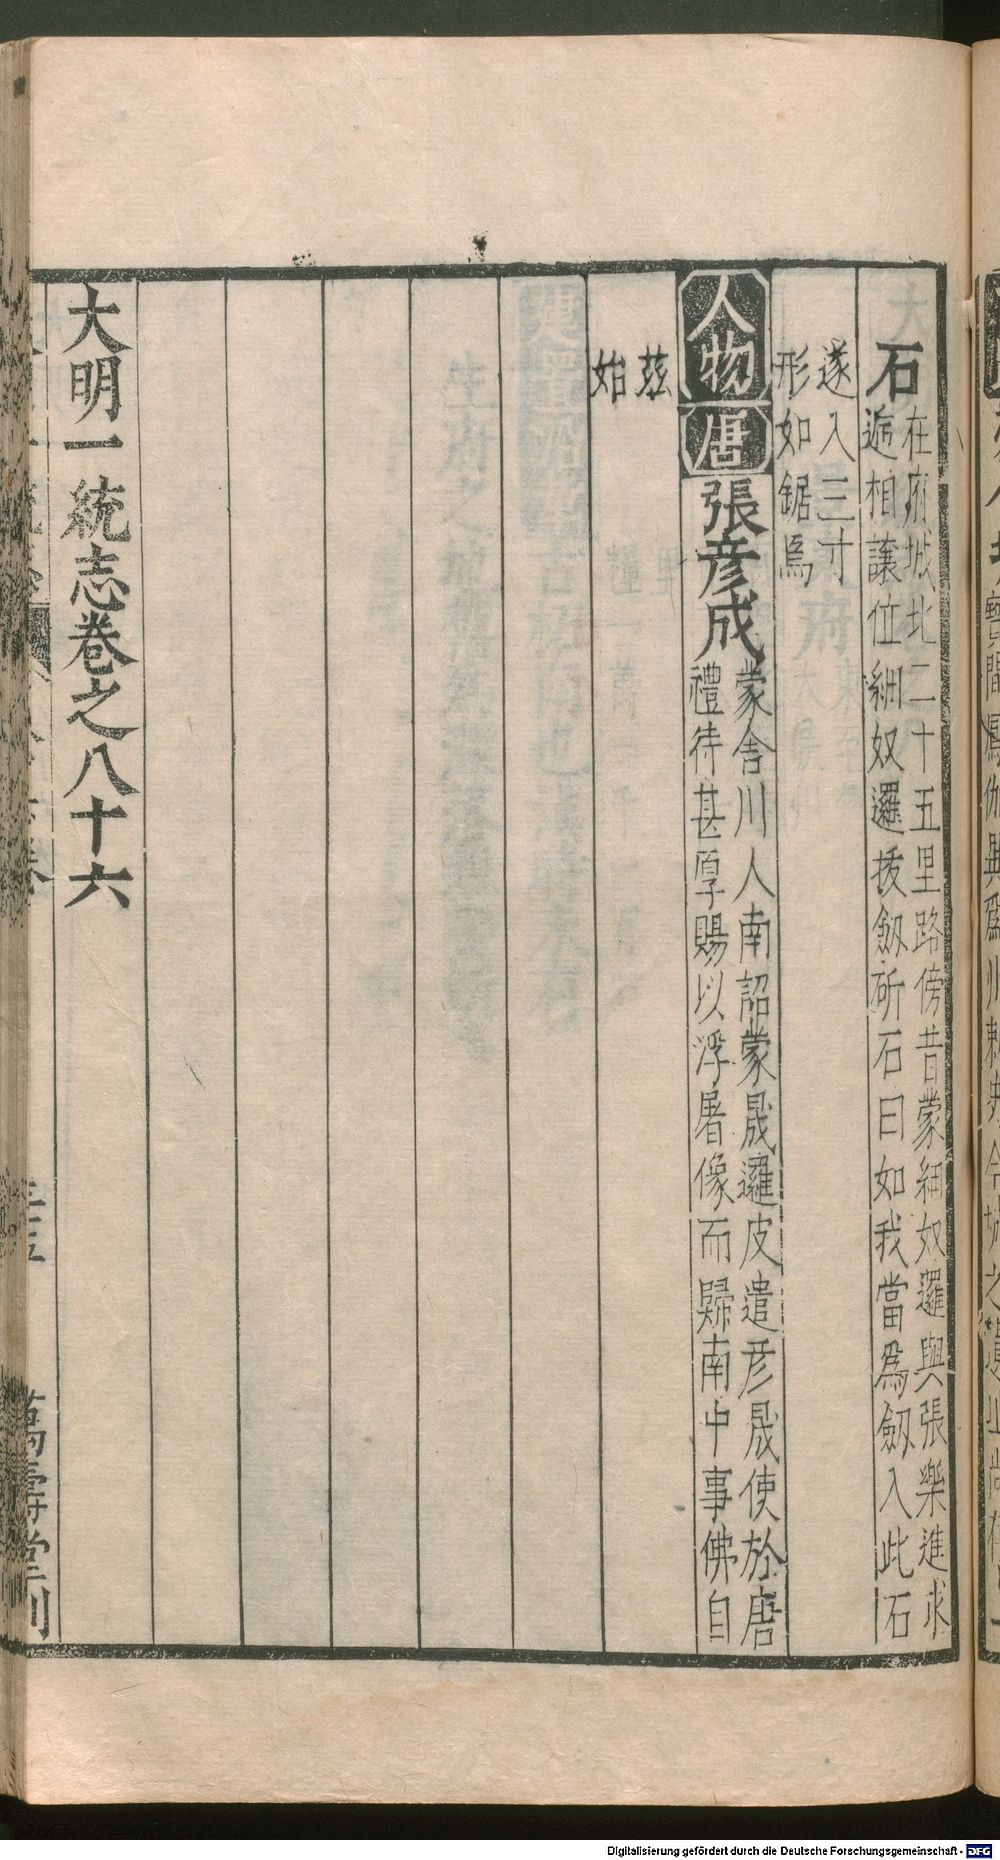 石
在府城北二十五里路傍昔蒙細奴邏與張樂進求
逅相讓位細奴邏拔劔斫石曰如我當爲劔入此石
遂入三寸
形如鋸焉
人物 唐 張彥成
蒙舍川人南詔蒙晟邏皮遣彥晟使於唐
禮待甚厚賜以浮屠像而歸南中事佛自
茲
始
大明一統志卷之八十六
萬壽堂刊
Digitalisierung gefördert durch die Deutsche Forschungsgemeinschaft - DFG